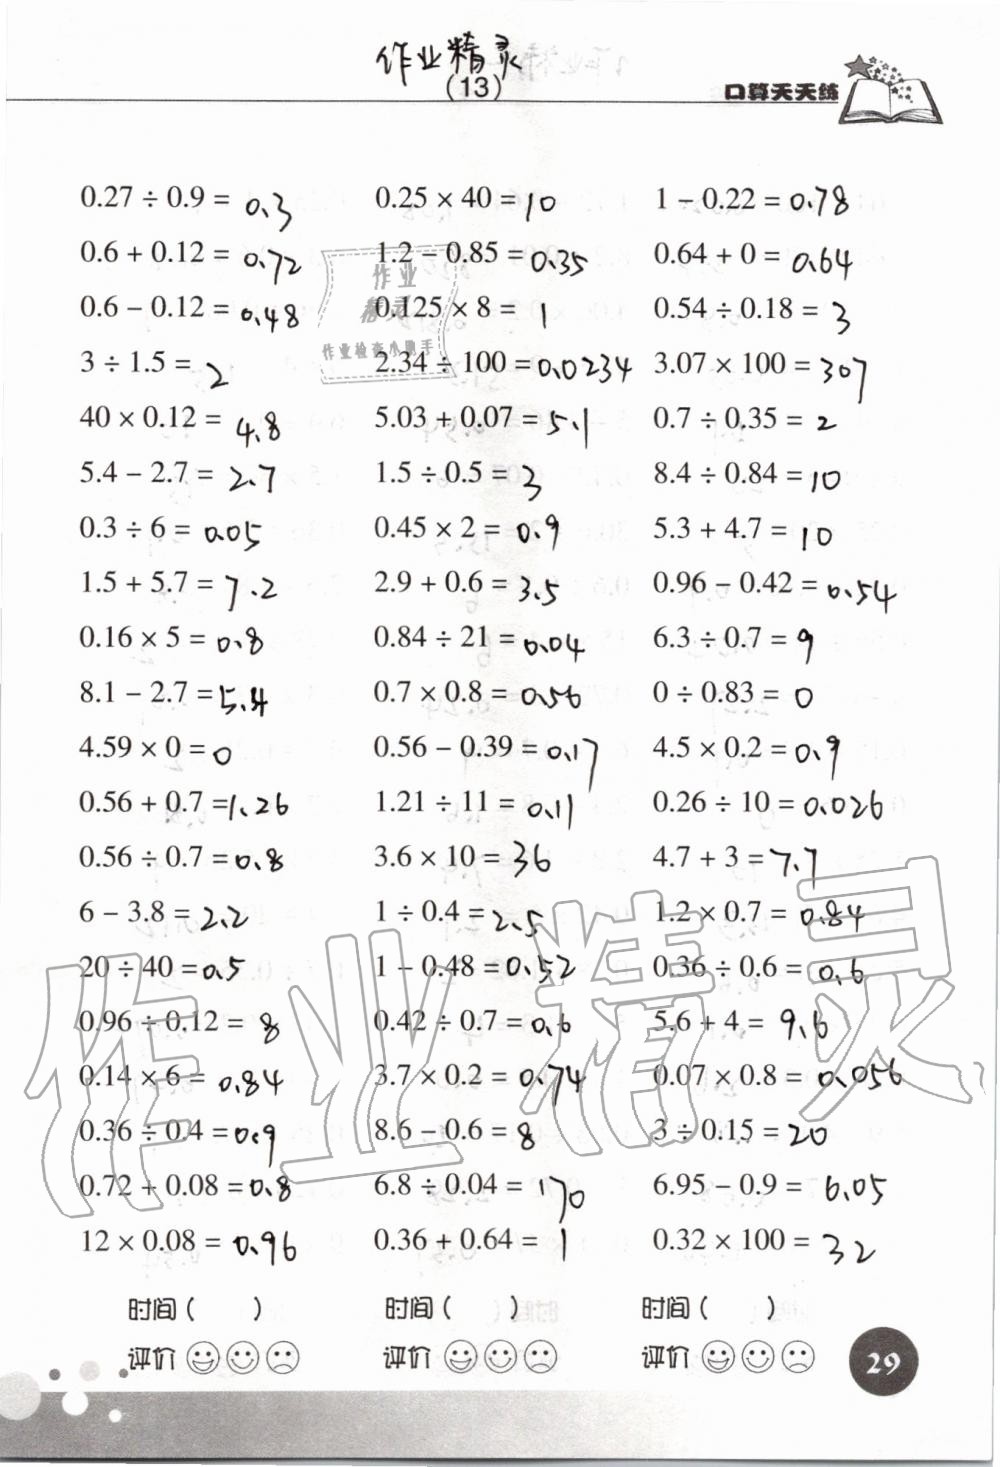 作业精灵
(13)
口算天天练
0.27 ÷ 0.9 = 0.3 0.25 × 40 = 10 1 − 0.22 = 0.78
0.6 + 0.12 = 0.72 1.2 − 0.85 = 0.35 0.64 + 0 = 0.64
0.6 − 0.12 = 0.48 0.125 × 8 = 1 0.54 ÷ 0.18 = 3
3 ÷ 1.5 = 2 2.34 ÷ 100 = 0.0234 3.07 × 100 = 307
40 × 0.12 = 4.8 5.03 + 0.07 = 5.1 0.7 ÷ 0.35 = 2
5.4 − 2.7 = 2.7 1.5 ÷ 0.5 = 3 8.4 ÷ 0.84 = 10
0.3 ÷ 6 = 0.05 0.45 × 2 = 0.9 5.3 + 4.7 = 10
1.5 + 5.7 = 7.2 2.9 + 0.6 = 3.5 0.96 − 0.42 = 0.54
0.16 × 5 = 0.8 0.84 ÷ 21 = 0.04 6.3 ÷ 0.7 = 9
8.1 − 2.7 = 5.4 0.7 × 0.8 = 0.56 0 ÷ 0.83 = 0
4.59 × 0 = 0 0.56 − 0.39 = 0.17 4.5 × 0.2 = 0.9
0.56 + 0.7 = 1.26 1.21 ÷ 11 = 0.11 0.26 ÷ 10 = 0.026
0.56 ÷ 0.7 = 0.8 3.6 × 10 = 36 4.7 + 3 = 7.7
6 − 3.8 = 2.2 1 ÷ 0.4 = 2.5 1.2 × 0.7 = 0.84
20 ÷ 40 = 0.5 1 − 0.48 = 0.52 0.36 ÷ 0.6 = 0.6
0.96 ÷ 0.12 = 8 0.42 ÷ 0.7 = 0.6 5.6 + 4 = 9.6
0.14 × 6 = 0.84 3.7 × 0.2 = 0.74 0.07 × 0.8 = 0.056
0.36 ÷ 0.4 = 0.9 8.6 − 0.6 = 8 3 ÷ 0.15 = 20
0.72 + 0.08 = 0.8 6.8 ÷ 0.04 = 170 6.95 − 0.9 = 6.05
12 × 0.08 = 0.96 0.36 + 0.64 = 1 0.32 × 100 = 32
时间( ) 时间( ) 时间( )
评价 评价 评价
29
作业
精灵
作业检查小助手
作业精灵